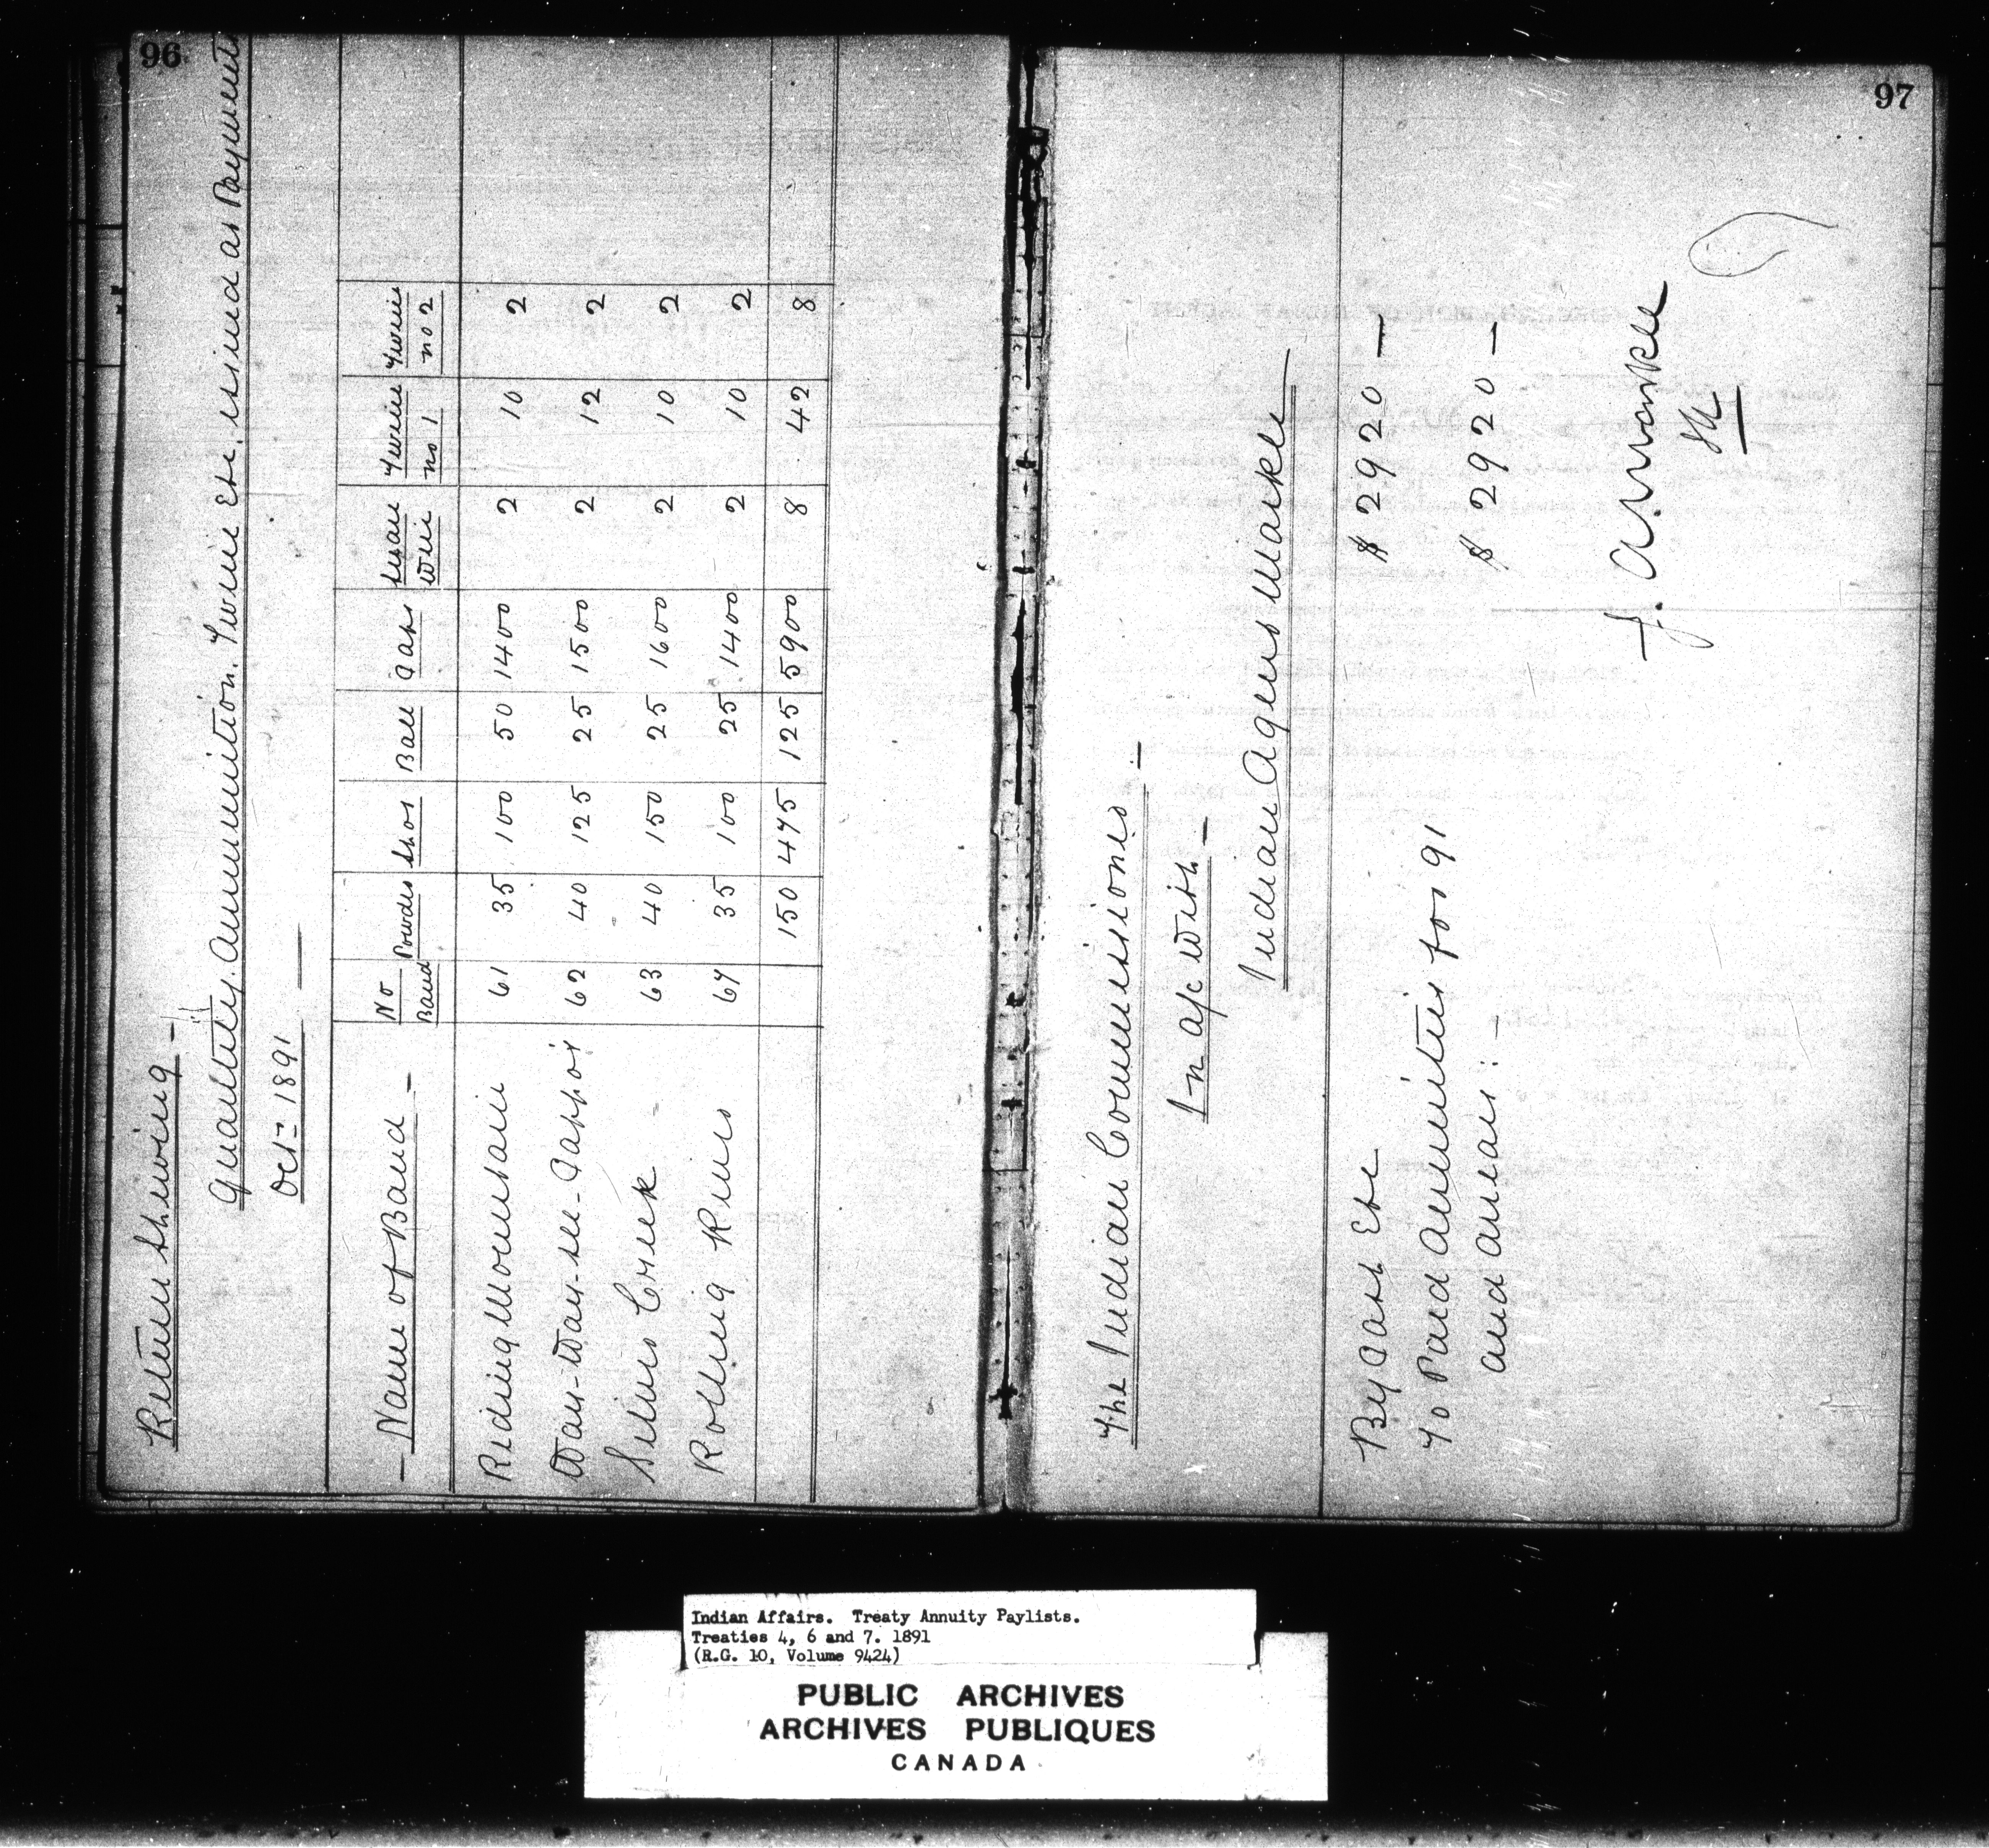 96
Return Shewing –
Quantity. Ammunition. Twine Etc. issued at Payments
Oct= 1891
– Name of Band – No Band Powder Shot Ball Caps Snare Wire Twine no 1 Twine no 2
Riding Mountain 61 35 100 50 1400 2 10 2
Way-Way-see-Cappo's 62 40 125 25 1500 2 12 2
Silver Creek 63 40 150 25 1600 2 10 2
Rolling River 67 35 100 25 1400 2 10 2
150 475 125 5900 8 42 8
97
The Indian Commissioner –
In a/c With –
Indian Agent Markle
By Cash Etc $ 2920 –
To Paid Annuities for 91
and arrears : – $ 2920 –
J. A. Markle
Indian Affairs. Treaty Annuity Paylists.
Treaties 4, 6 and 7. 1891
(R.G. 10, Volume 9424)
PUBLIC ARCHIVES
ARCHIVES PUBLIQUES
CANADA